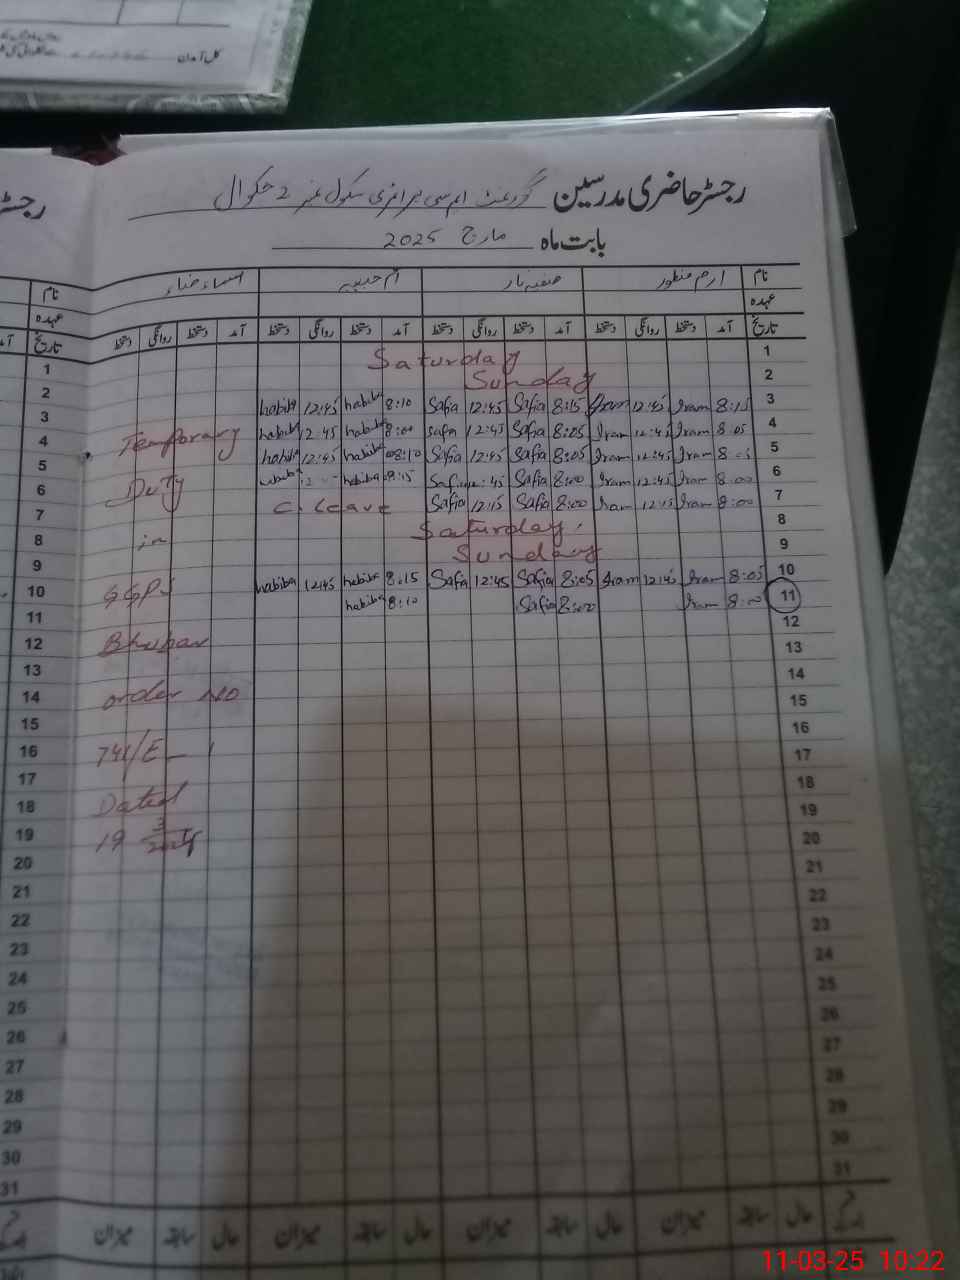 کل آمدن
رجسٹر حاضری مدرسین گورنمنٹ ایم سی پرائمری سکول نمبر 2 چکوال
بابت ماہ مارچ 2025
نام ارم منظور صفیہ ام حبیبہ اسماء ضیاء نام
عہدہ عہدہ
تاریخ آمد دستخط روانگی دستخط آمد دستخط روانگی دستخط آمد دستخط روانگی دستخط آمد دستخط روانگی دستخط تاریخ آمد
1 Saturday 1
2 Sunday 2
habiba 12:45 habiba 8:10 Safia 12:45 Safia 8:15 Iram 12:45 Iram 8:15 3
3 habiba 12:45 habiba 8:00 Safia 12:45 Safia 8:05 Iram 12:45 Iram 8:05 4
4 Temporary habiba 12:45 habiba 08:10 Safia 12:45 Safia 8:05 Iram 12:45 Iram 5
5 habiba 8:15 Safia 8:00 Iram 12:45 Iram 8:00 6
6 Duty C. Leave Safia 12:15 Safia 8:00 Iram 12:15 Iram 8:00 7
7 Saturday 8
8 in Sunday 9
9 habiba 12:45 habiba 8:15 Safia 12:45 Safia 8:05 Iram 12:45 Iram 8:05 10
10 GGPS habiba 8:10 Safia 8:00 Iram 8:00 11
11 12
12 Bhubar 13
13 14
14 order No 15
15 16
16 741/E 17
17 18
18 Dated 19
19 19 3/2024 20
20 21
21 22
22 23
23 24
24 25
25 26
26 27
27 28
28 29
29 30
30 31
31
حال سابقہ میزان حال سابقہ میزان حال سابقہ میزان حال سابقہ میزان
11-03-25 10:22